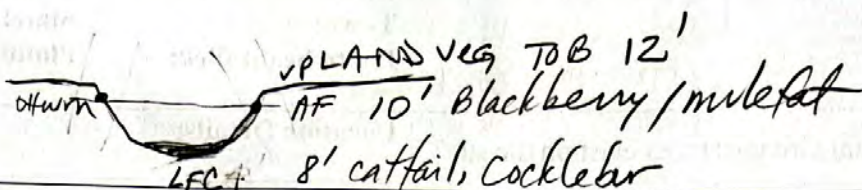 UPLAND Veg TOB 12'
OHWM AF 10' Blackberry/mulefat
LFC 8' cattail, Cocklebur